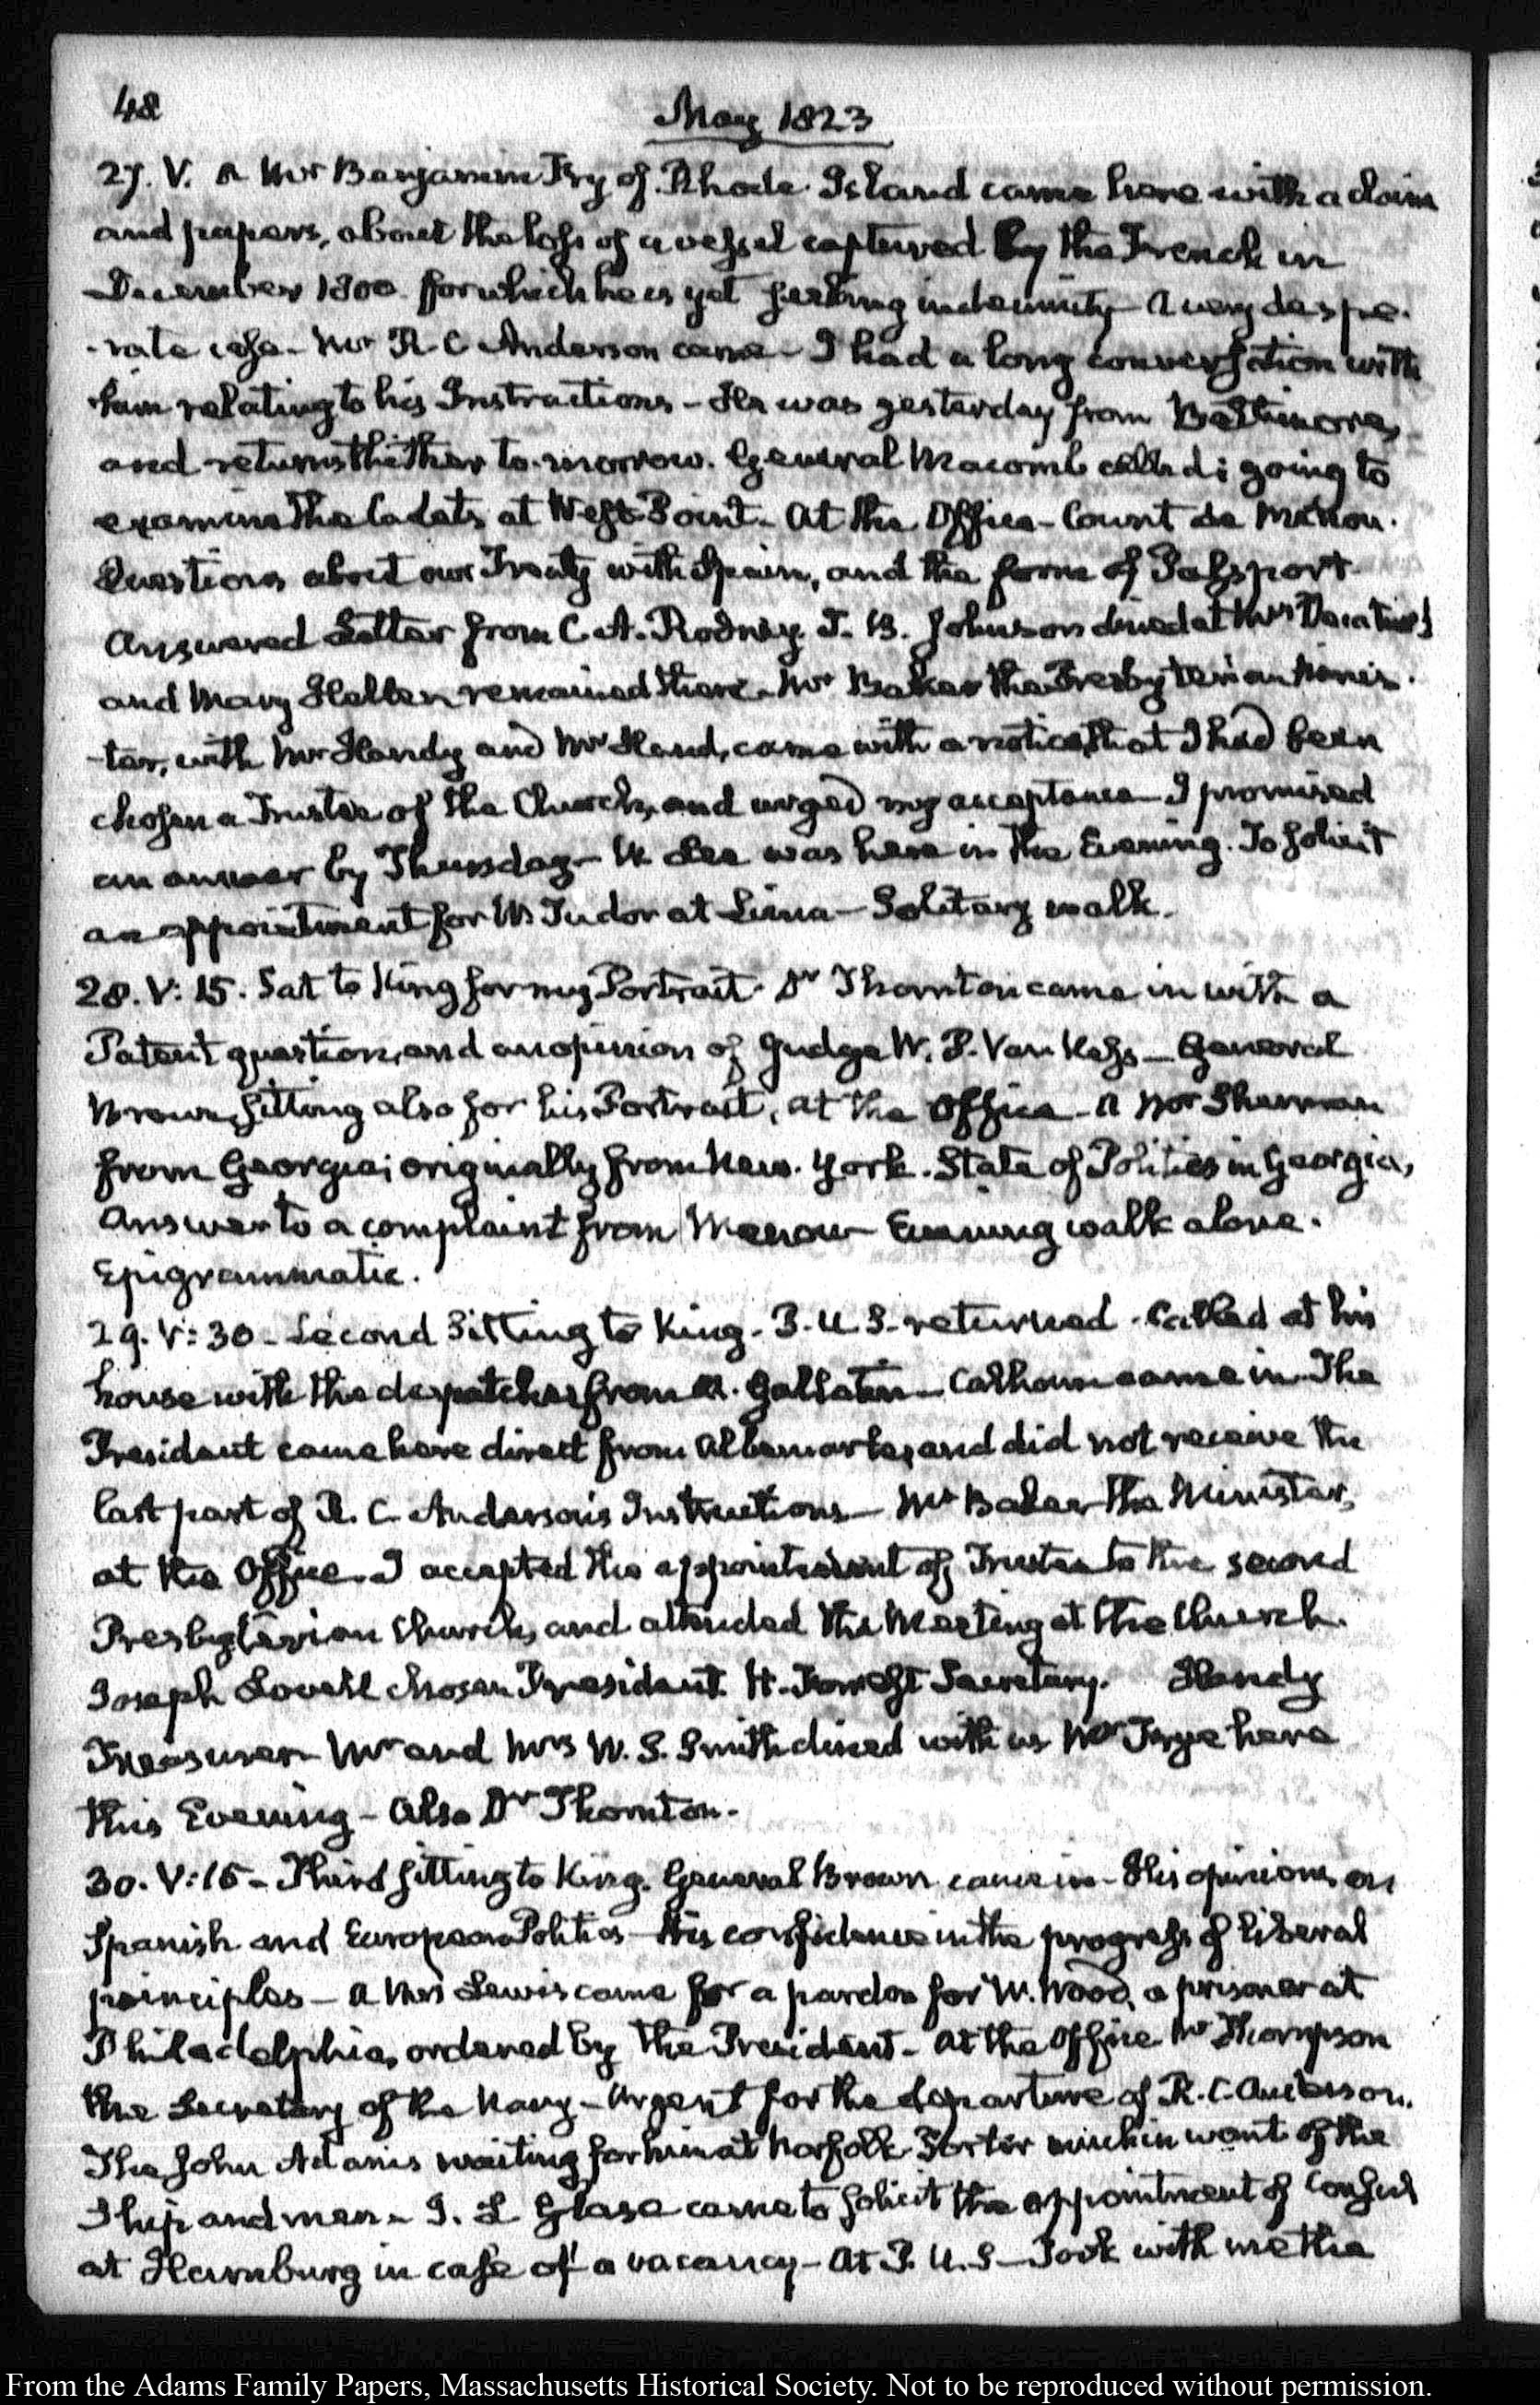 48
May 1823
27. V. A Mr Benjamin Fry of Rhode Island came here with a claim
and papers, about the loss of a vessel captured by the French in
December 1800 for which he is yet seeking indemnity— A very despe-
-rate case— Mr R. C Anderson came— I had a long conversation with
him relating to his Instructions— He was yesterday from Baltimore,
and returns thither to-morrow. General Macomb called; going to
examine the Cadets, at West-Point— At the Office— Count de Menou.
Questions about our Treaty with Spain, and the form of Passport
Answered Letter from C. A. Rodney. T. B. Johnson dined at Mrs Decatur's
and Mary Hellen remained there— Mr Baker the Presbyterian Minis-
-ter, with Mr Handy and Mr came with a notice, that I had been
chosen a Trustee of the Church, and urged my acceptance— I promised
an answer by Thursday— W. Lee was here in the Evening. To solicit
an appointment for W. Tudor at Lima— Solitary walk.
28. V: 15. Sat to King for my Portrait. Dr Thornton came in with a
Patent question, and an opinion of Judge W. P. Van Ness— General
Brown, sitting also for his Portrait, at the Office— A Mr Sherman
from Georgia; originally from New-York. State of Politics in Georgia,
Answer to a complaint from Menou— Evening walk alone.
Epigrammatic.
29. V: 30— Second Sitting to King— P. U. S. returned. Called at his
house with the despatches from A. Gallatin— Calhoun came in— The
President came here direct from Albemarle, and did not receive the
last part of R. C. Anderson's Instructions— Mr Baker the Minister,
at the Office. I accepted the appointment of Trustee to the second
Presbyterian Church, and attended the Meeting at the Church.
Joseph Lovell chosen President. H. Forrest Secretary. Handy
Treasurer— Mr and Mrs W. S. Smith dined with us Mr Frye here
this Evening— Also Dr Thornton.
30. V: 15— Third sitting to King. General Brown came in— His opinions, on
Spanish and European Politics— His confidence in the progress of liberal
principles— A Mrs Lewis came for a pardon for W. Wood, a prisoner at
Philadelphia, ordered by the President— At the Office Mr Thompson
the Secretary of the Navy— Urgent for the departure of R. C. Anderson.
The John Adams waiting for him at Norfolk— Porter much in want of the
Ship and men— J. L Glase came to solicit the appointment of Consul
at Hamburg in case of a vacancy— At P. U. S— Took with me the
From the Adams Family Papers, Massachusetts Historical Society. Not to be reproduced without permission.